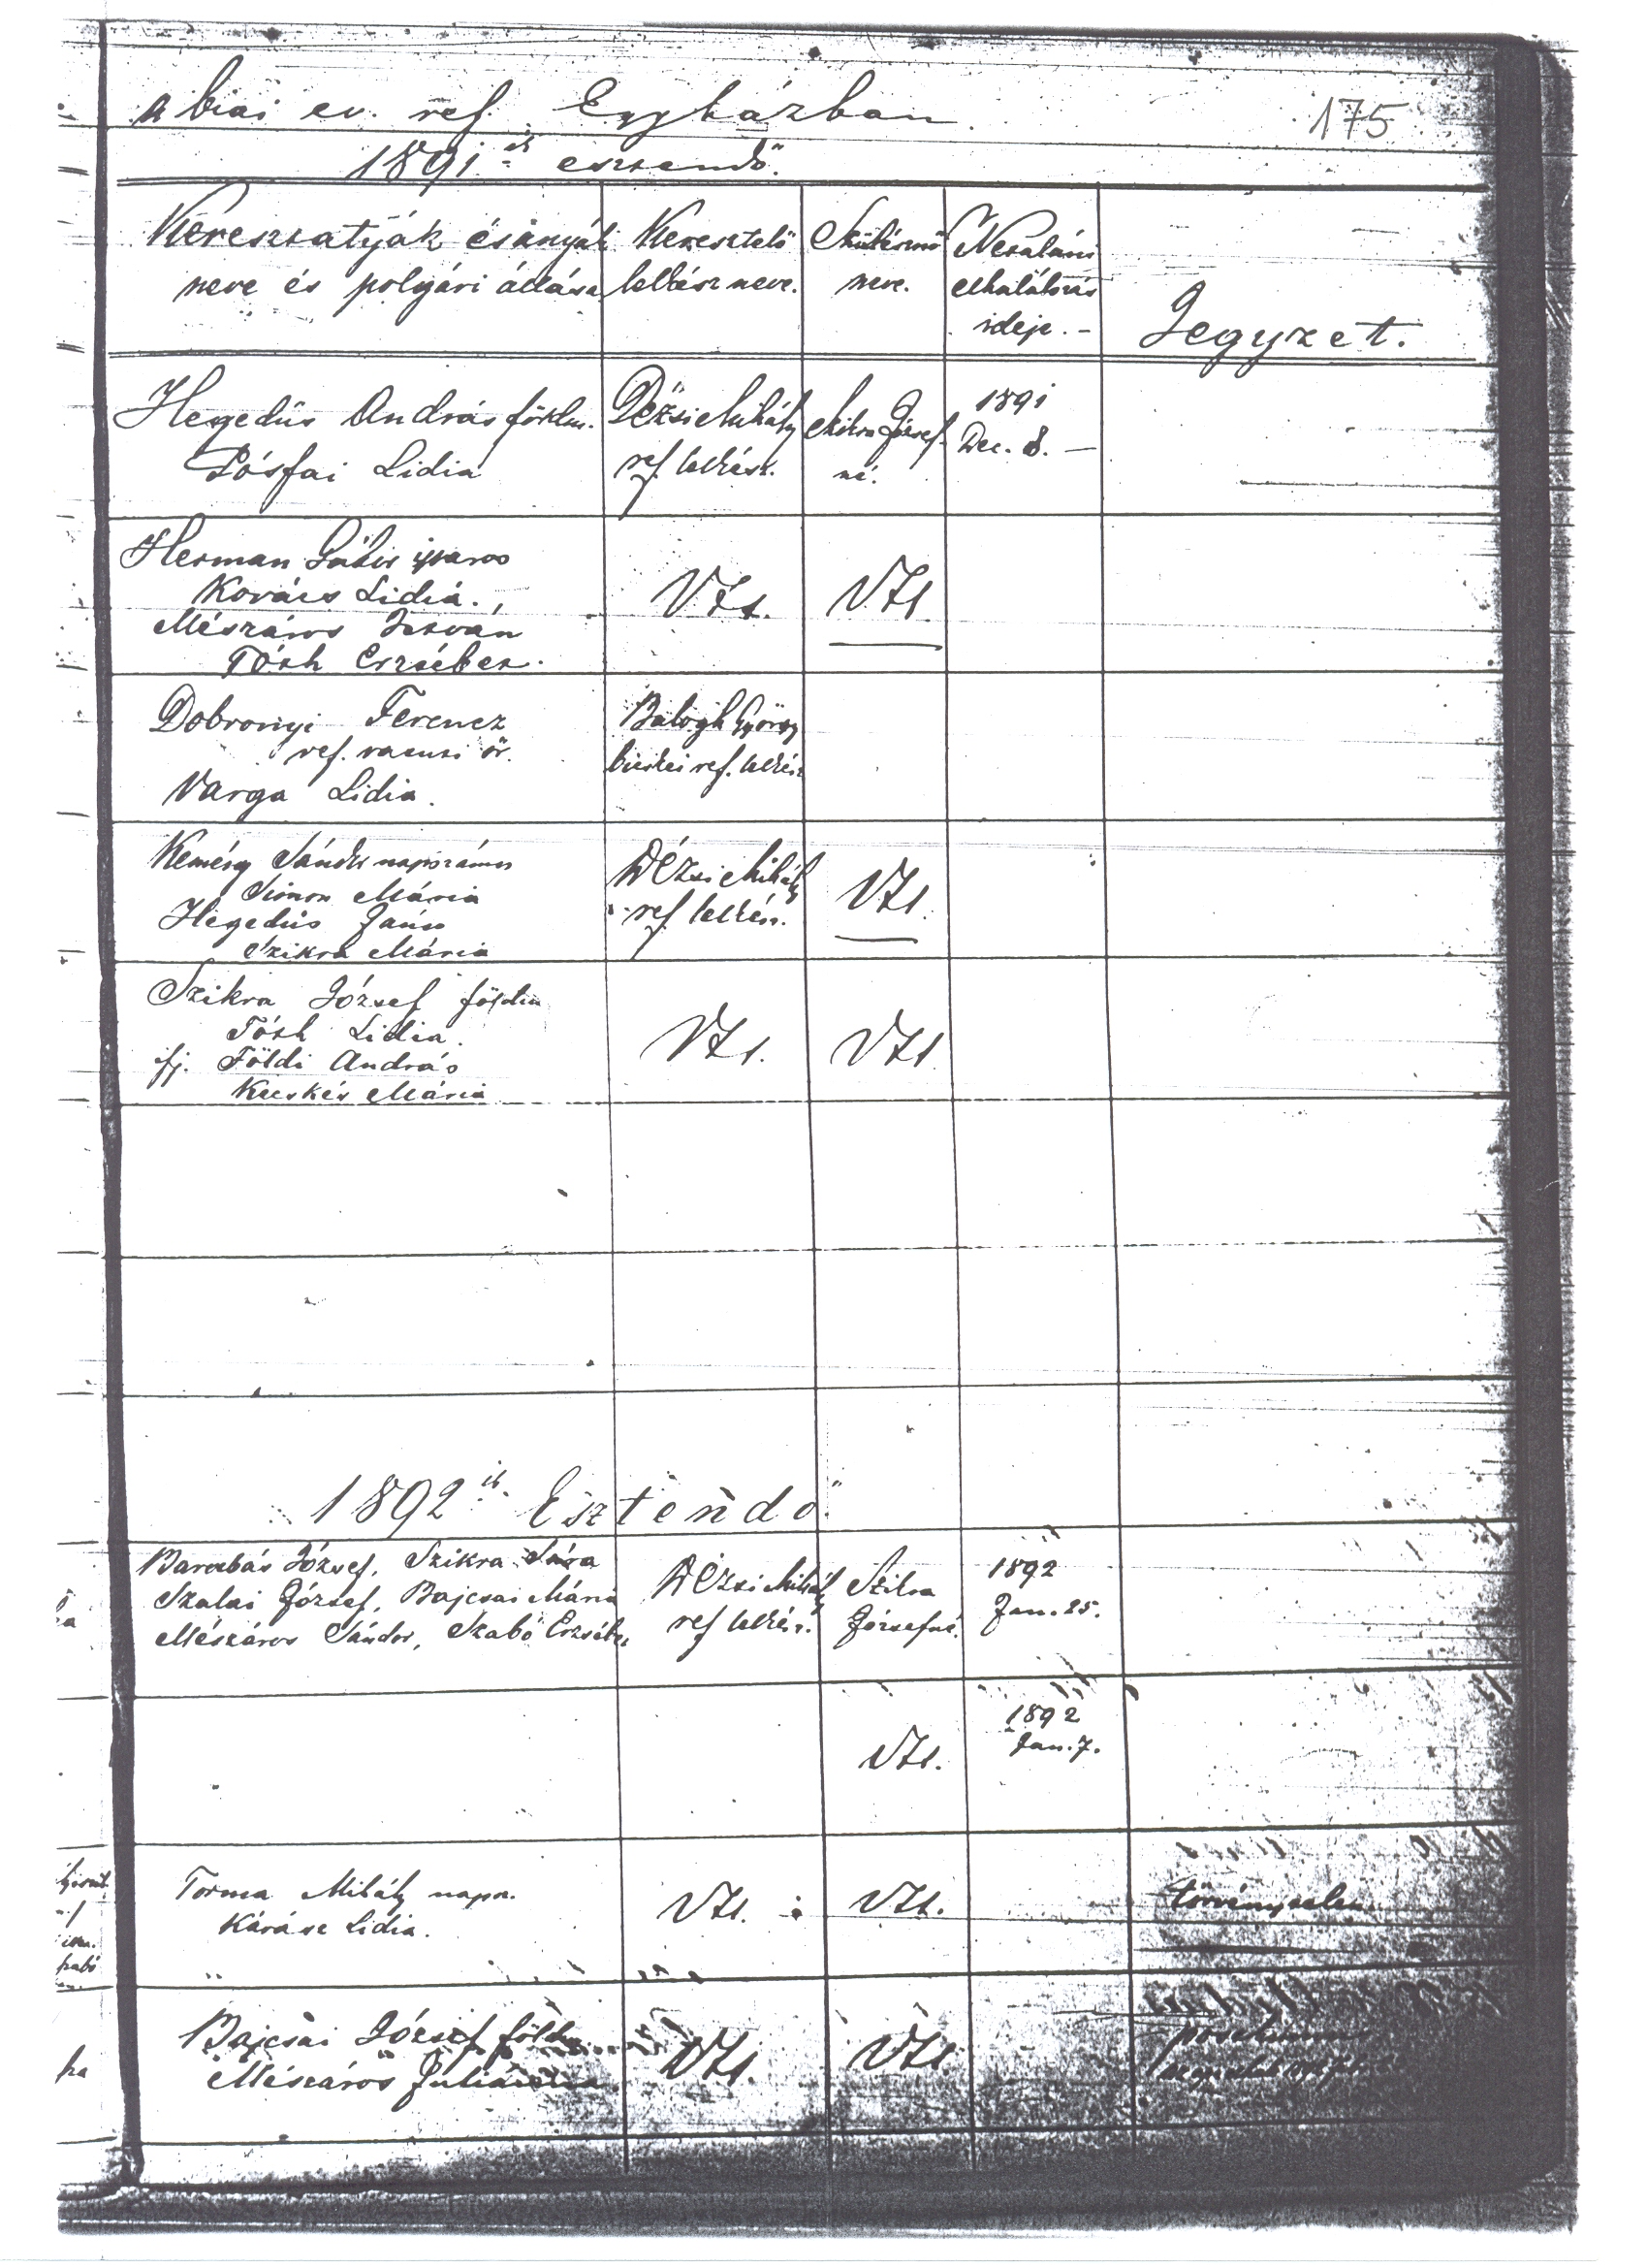 a biai ev. ref. Egyházban.
175
1891 ik esztendő.
Keresztatyák és anyák
neve és polgári állása
Keresztelő
lelkész neve.
Szülésznő
neve.
Netaláni
elhalálozás
ideje. –
Jegyzet.
Hegedüs András földm.
Pósfai Lidia
Dézsi Mihály
ref. lelkész.
Szikra József-
né.
1891
Dec. 8. –
Herman Gábor iparos
Kovács Lidia.
Mészáros István
Tóth Erzsébet.
Vzs.
Vzs.
Dobronyi Ferencz
ref. vasuti őr.
Varga Lidia.
Balogh György
bicskei ref. lelkész
Kemény Sándor napszámos
Simon Mária
Hegedüs János
Szikra Mária
Dézsi Mihály
ref. lelkész.
Vzs.
Szikra József földm
Tóth Lidia.
ifj. Földi András
Kecskés Mária
Vzs.
Vzs.
1892 ik Esztendő.
Barabás József, Szikra Sára
Szalai József, Bajcsai Mária
Mészáros Sándor, Szabó Erzsébet
Dézsi Mihály
ref lelkész.
Szikra
Józsefné.
1892
Jan. 25.
Vzs.
1892
Jan. 7.
Torma Mihály napsz.
Lidia.
Vzs.
Vzs.
törvénytelen.
Bajcsai József földm.
Mészáros Juliánna
Vzs.
Vzs.